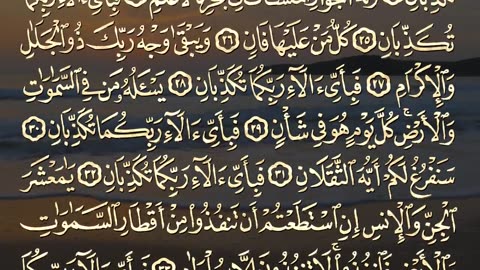 تُكَذِّبَانِ ٢٥ كُلُّ مَنْ عَلَيْهَا فَانٍ ٢٦ وَيَبْقَىٰ وَجْهُ رَبِّكَ ذُو ٱلْجَلَٰلِ
وَٱلْإِكْرَامِ ٢٧ فَبِأَىِّ ءَالَآءِ رَبِّكُمَا تُكَذِّبَانِ ٢٨ يَسْـَٔلُهُۥ مَن فِى ٱلسَّمَٰوَٰتِ
وَٱلْأَرْضِ ۚ كُلَّ يَوْمٍ هُوَ فِى شَأْنٍ ٢٩ فَبِأَىِّ ءَالَآءِ رَبِّكُمَا تُكَذِّبَانِ ٣٠
سَنَفْرُغُ لَكُمْ أَيُّهَ ٱلثَّقَلَانِ ٣١ فَبِأَىِّ ءَالَآءِ رَبِّكُمَا تُكَذِّبَانِ ٣٢ يَٰمَعْشَرَ
ٱلْجِنِّ وَٱلْإِنسِ إِنِ ٱسْتَطَعْتُمْ أَن تَنفُذُوا۟ مِنْ أَقْطَارِ ٱلسَّمَٰوَٰتِ